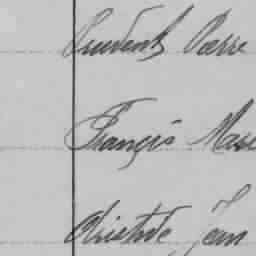 Prudent Parre
François Marc
Aristide Jean